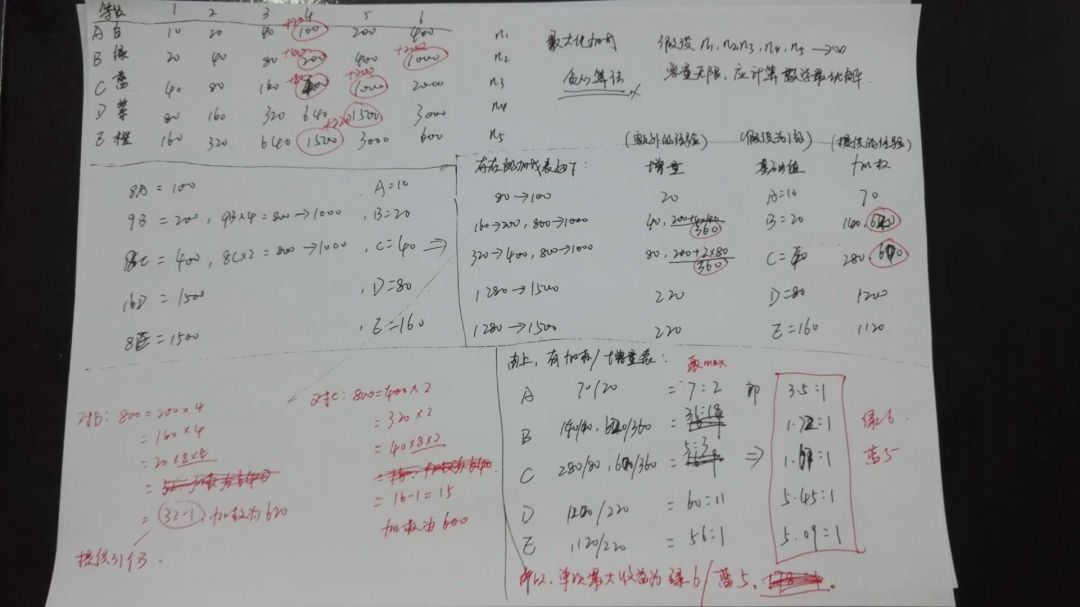 等级 1 2 3 4 5 6
A 白 10 20 40 100 200 400 n₁
B 绿 20 40 80 200 400 1000 n₂
C 蓝 40 80 160 1000 2000 n₃
D 紫 80 160 320 640 1500 3000 n₄
E 橙 160 320 640 1500 3000 600 n₅
+20 +200 +220
最大化加利
贪心算法
假设 n₁,n₂,n₃,n₄,n₅ → 200
容量无限, 应计算数学最优解
8A = 100 A=10
9B = 200, 9B×4 = 800→1000 B=20
8C = 400, 8C×2 = 800→1000 C=40 ⇒
16D = 1500 D=80
8E = 1500 E=160
(额外的经验) (假设为1级) (提供的经验)
存在的加成表如下: 增量 基础值 加权
80→100 20 A=10 70
160→200, 800→1000 40, 200+4×40 360 B=20 140, 620
320→400, 800→1000 80, 200+2×80 360 C=40 280, 600
1280→1500 220 D=80 1200
1280→1500 220 E=160 1120
由上, 有加权/增量表: 取max
A 70/20 = 7:2 即 3.5:1
B 140/40, 620/360 = 31:18 1.72:1 绿6
C 280/80, 600/360 = 5:3 ⇒ 1.67:1 蓝5
D 1200/220 = 60:11 5.45:1
E 1120/220 = 56:11 5.09:1
所以, 单次最大收益为绿6/蓝5.
对B: 800=200×4
= 160×4
= 20×8×4
= 32-1, 加权为620
提供31个B.
对C: 800=400×2
= 320×2
= 40×8×2
= 16-1=15
加权为600